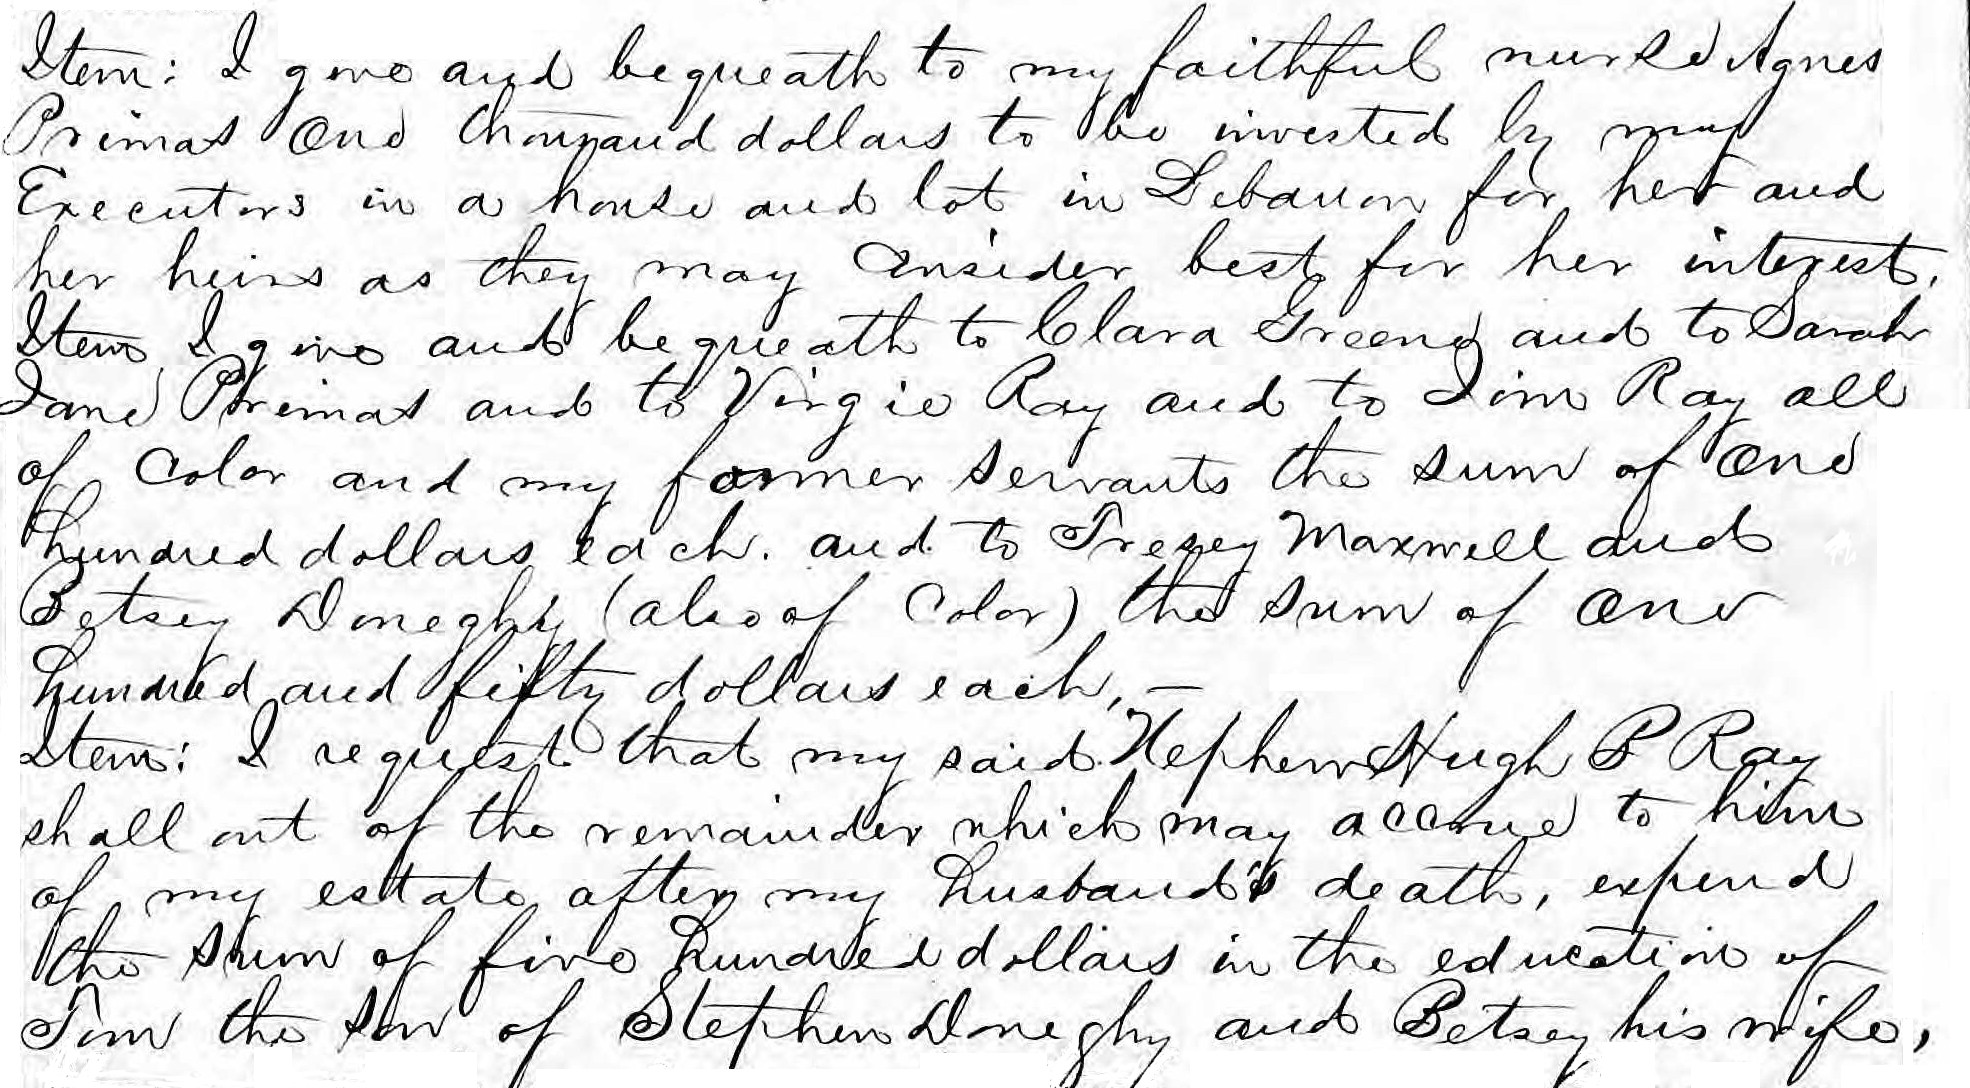 Item: I give and bequeath to my faithful nurse Agnes
Primas One thousand dollars to be invested by my
Executors in a house and lot in Lebanon for her and
her heirs as they may consider best for her interest.
Item I give and bequeath to Clara Greene and to Sarah
Jane Primas and to Virgie Ray and to Jim Ray all
of Color and my former servants the sum of One
hundred dollars each. and to Maxwell and
Betsey Doneghy (also of Color) the sum of One
hundred and fifty dollars each, —
Item: I request that my said Nephew Hugh B Ray
shall out of the remainder which may accrue to him
of my estate after my husband's death, expend
the sum of five hundred dollars in the education of
Tom the son of Stephen Doneghy and Betsey his wife,